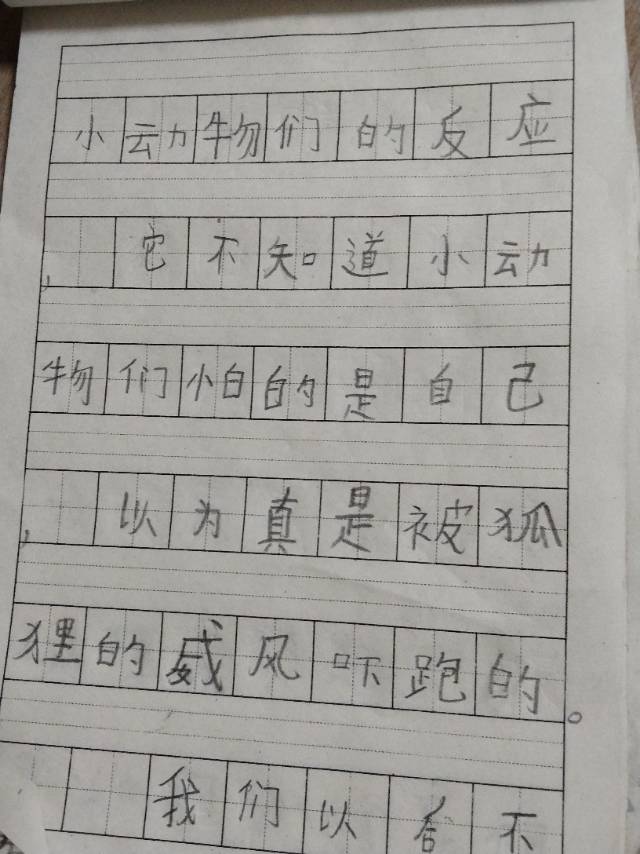 小动物们的反应
，它不知道小动
物们怕的是自己
，以为真是被狐
狸的威风吓跑的。
我们以后不